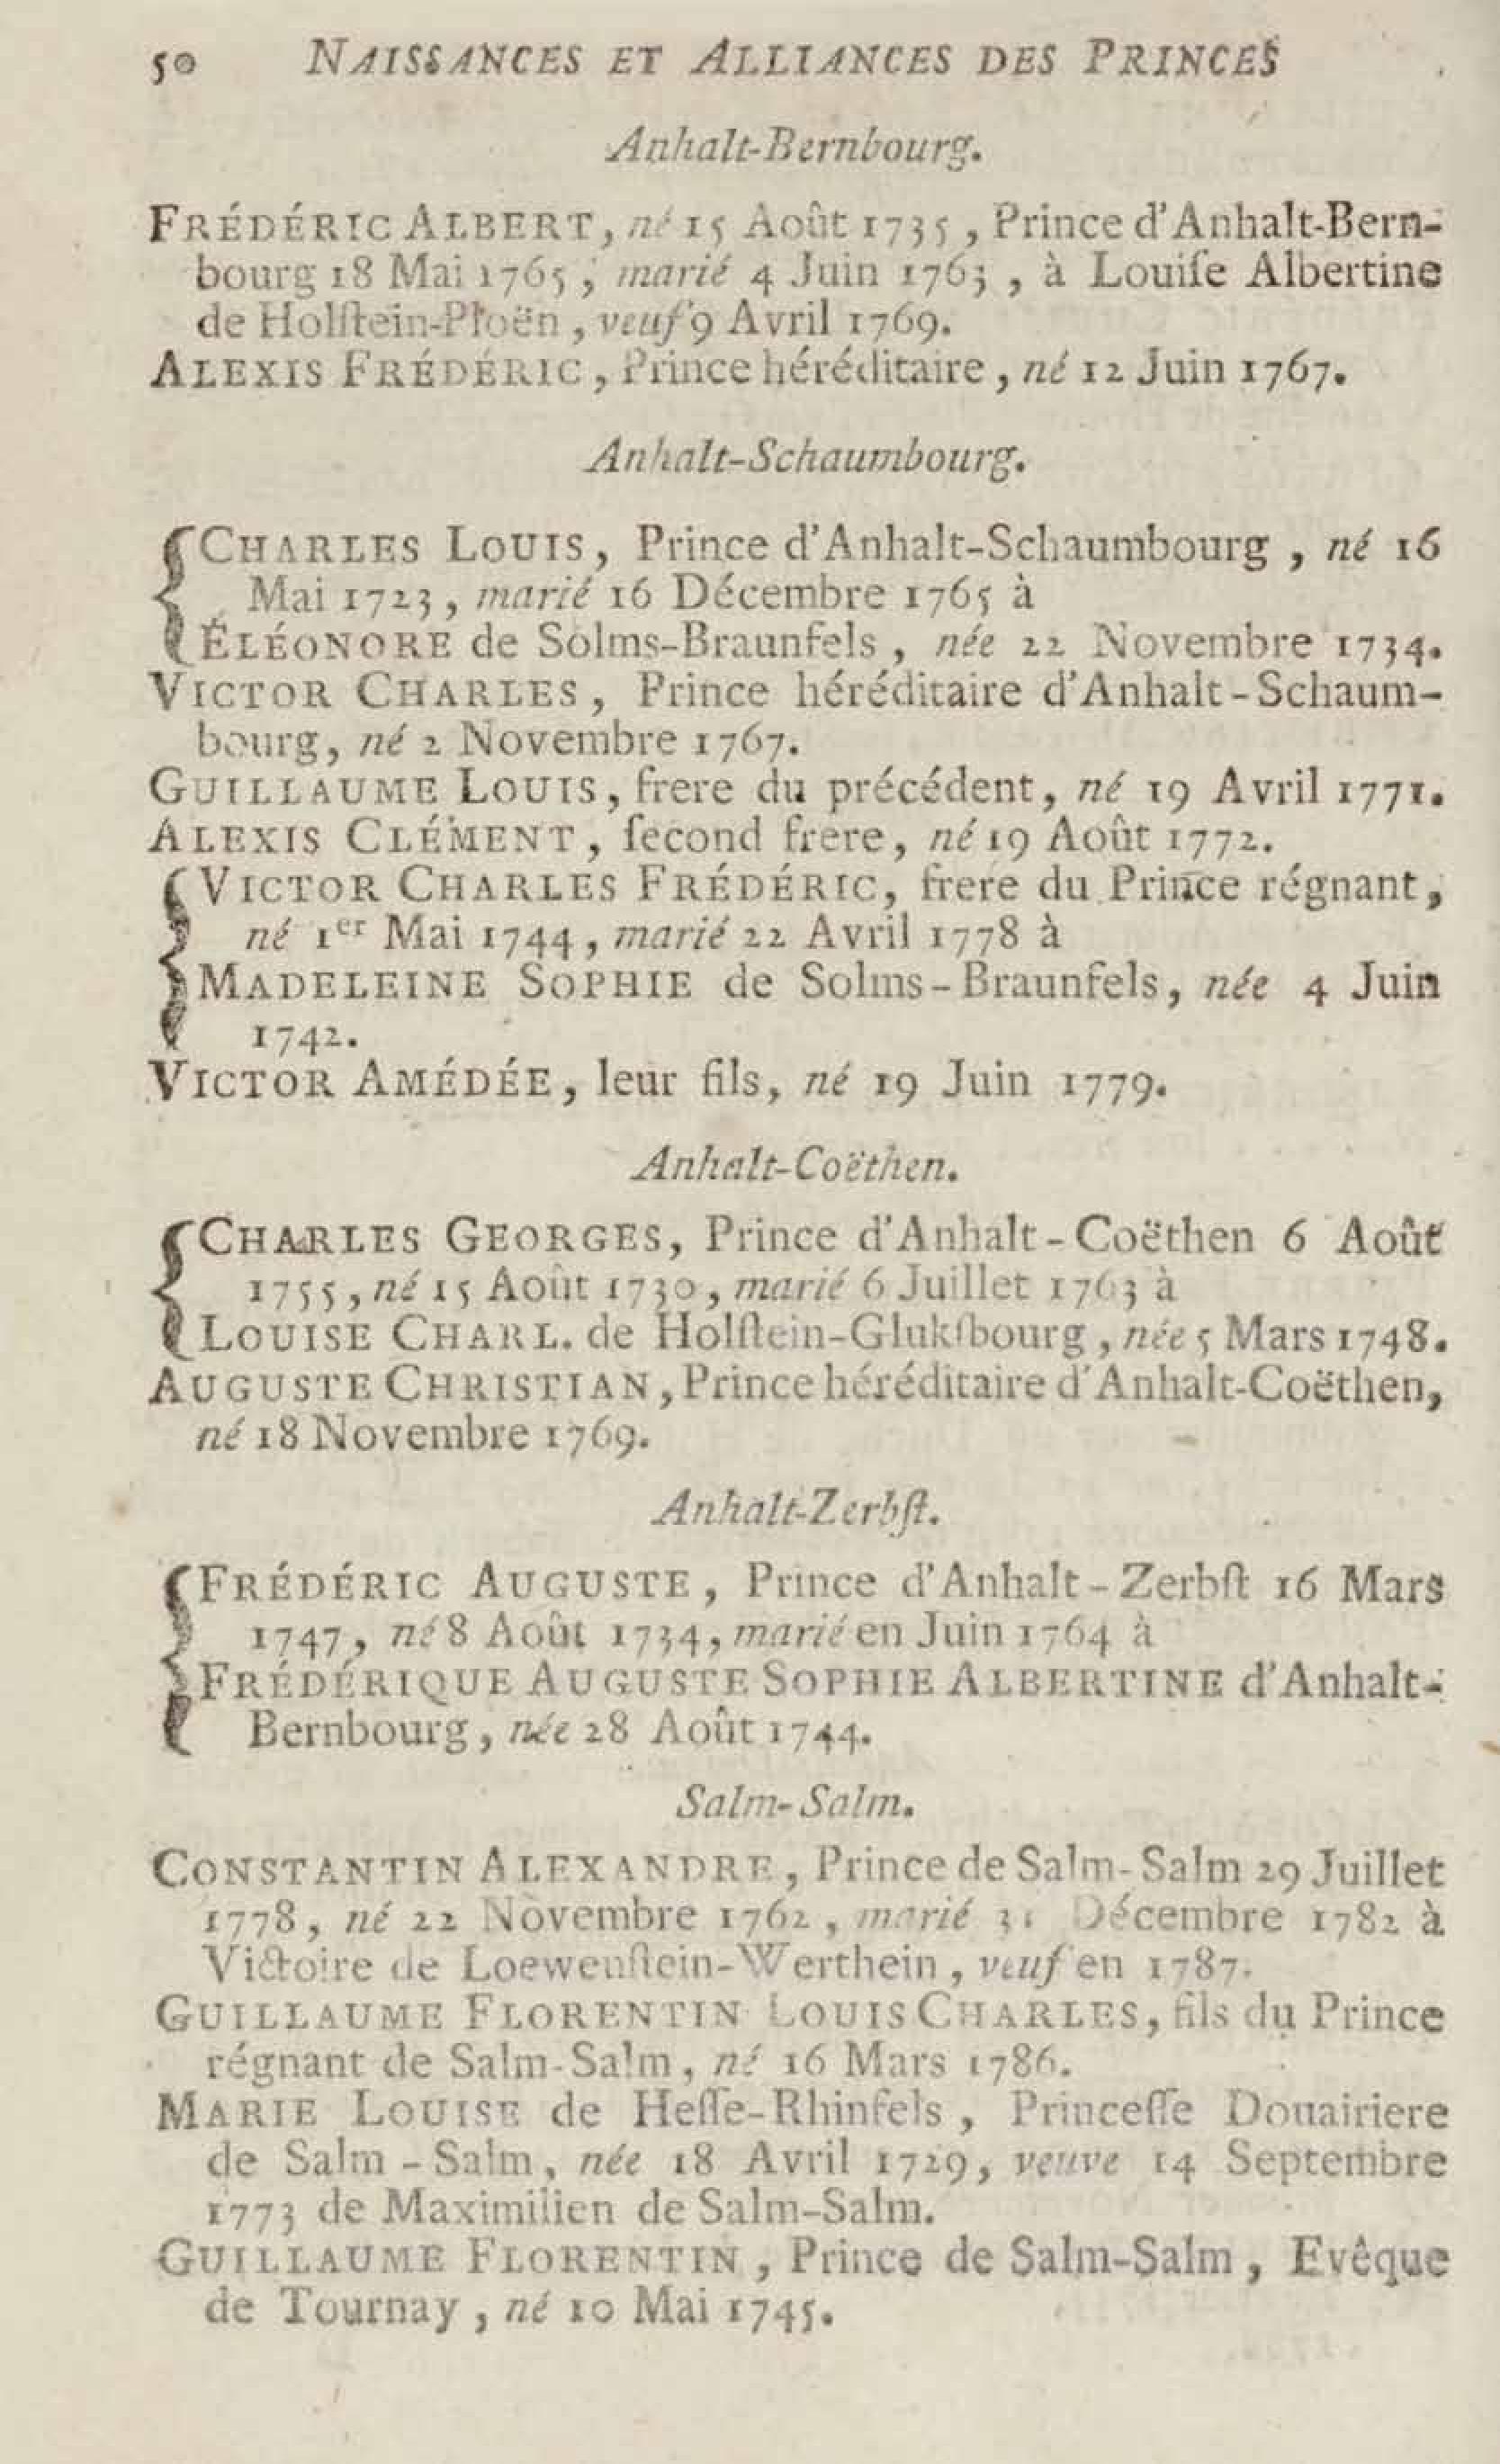 50 NAISSANCES ET ALLIANCES DES PRINCES
Anhalt-Bernbourg.
FRÉDÉRIC ALBERT, né 15 Août 1735, Prince d'Anhalt-Bern-
bourg 18 Mai 1765, marié 4 Juin 1763, à Louiſe Albertine
de Holſtein-Ploën, veuf 9 Avril 1769.
ALEXIS FRÉDÉRIC, Prince héréditaire, né 12 Juin 1767.
Anhalt-Schaumbourg.
CHARLES LOUIS, Prince d'Anhalt-Schaumbourg, né 16
Mai 1723, marié 16 Décembre 1765 à
ÉLÉONORE de Solms-Braunfels, née 22 Novembre 1734.
VICTOR CHARLES, Prince héréditaire d'Anhalt-Schaum-
bourg, né 2 Novembre 1767.
GUILLAUME LOUIS, frere du précédent, né 19 Avril 1771.
ALEXIS CLÉMENT, ſecond frere, né 19 Août 1772.
VICTOR CHARLES FRÉDÉRIC, frere du Prince régnant,
né 1er Mai 1744, marié 22 Avril 1778 à
MADELEINE SOPHIE de Solms-Braunfels, née 4 Juin
1742.
VICTOR AMÉDÉE, leur fils, né 19 Juin 1779.
Anhalt-Coëthen.
CHARLES GEORGES, Prince d'Anhalt-Coëthen 6 Août
1755, né 15 Août 1730, marié 6 Juillet 1763 à
LOUISE CHARL. de Holſtein-Glukſbourg, née 5 Mars 1748.
AUGUSTE CHRISTIAN, Prince héréditaire d'Anhalt-Coëthen,
né 18 Novembre 1769.
Anhalt-Zerbſt.
FRÉDÉRIC AUGUSTE, Prince d'Anhalt-Zerbſt 16 Mars
1747, né 8 Août 1734, marié en Juin 1764 à
FRÉDÉRIQUE AUGUSTE SOPHIE ALBERTINE d'Anhalt-
Bernbourg, née 28 Août 1744.
Salm-Salm.
CONSTANTIN ALEXANDRE, Prince de Salm-Salm 29 Juillet
1778, né 22 Novembre 1762, marié 31 Décembre 1782 à
Victoire de Loewenſtein-Werthein, veuf en 1787.
GUILLAUME FLORENTIN LOUIS CHARLES, fils du Prince
régnant de Salm-Salm, né 16 Mars 1786.
MARIE LOUISE de Heſſe-Rhinfels, Princeſſe Douairiere
de Salm-Salm, née 18 Avril 1729, veuve 14 Septembre
1773 de Maximilien de Salm-Salm.
GUILLAUME FLORENTIN, Prince de Salm-Salm, Evêque
de Tournay, né 10 Mai 1745.